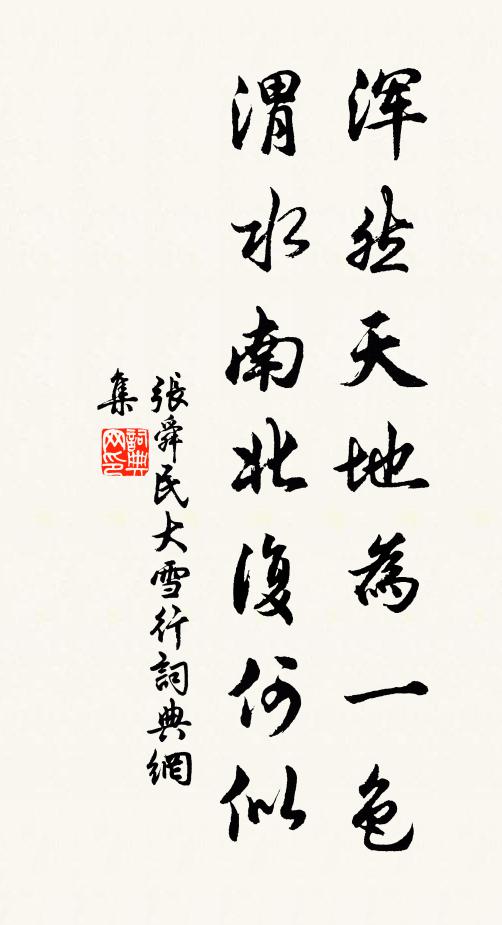 浑然天地為一色
渭水南北復何似
張舜民大雪行詞典網
集
詞典网印